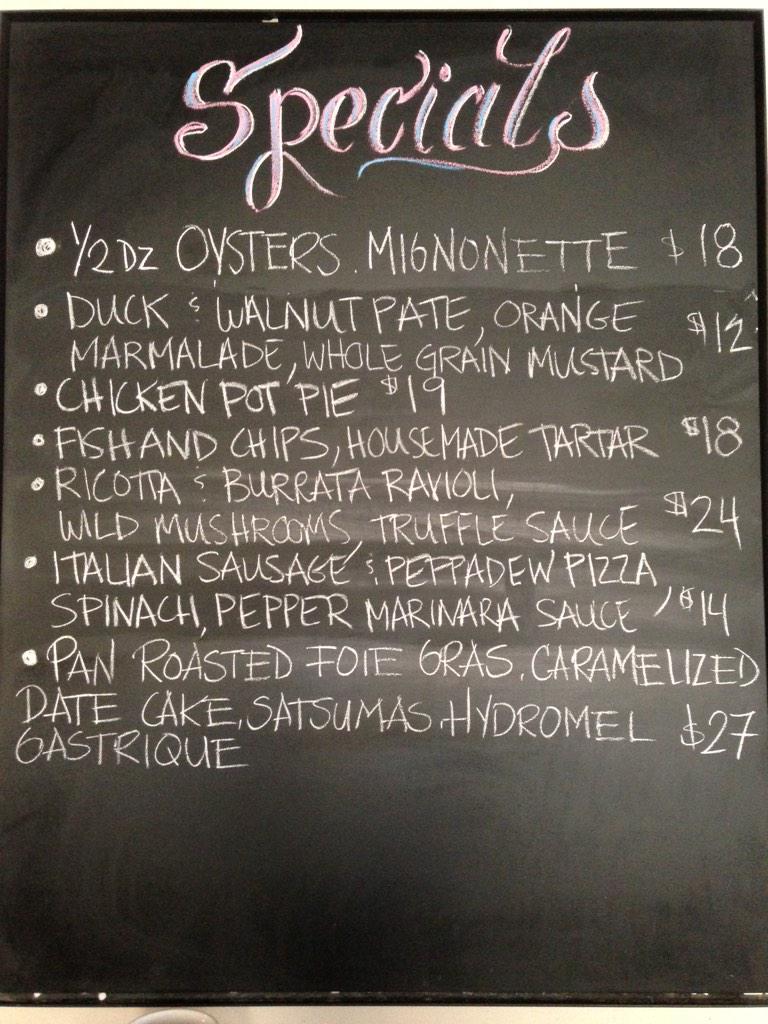 Specials
• 1/2 DZ OYSTERS. MIGNONETTE $18
• DUCK & WALNUT PATE, ORANGE
MARMALADE, WHOLE GRAIN MUSTARD $12
• CHICKEN POT PIE $19
• FISH AND CHIPS, HOUSEMADE TARTAR $18
• RICOTTA & BURRATA RAVIOLI,
WILD MUSHROOMS, TRUFFLE SAUCE $24
• ITALIAN SAUSAGE & PEPPADEW PIZZA,
SPINACH, PEPPER MARINARA SAUCE $14
• PAN ROASTED FOIE GRAS, CARAMELIZED
DATE CAKE, SATSUMAS, HYDROMEL $27
GASTRIQUE